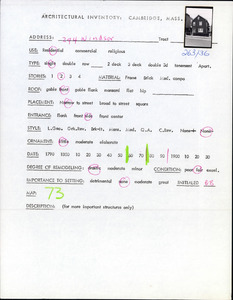 ARCHITECTURAL INVENTORY: CAMBRIDGE, MASS.
263/36
ADDRESS: 294 Windsor Treet
USE: Residential commercial religious
TYPE: single double row 2 deck 3 deck double 3d tenement Apart.
STORIES: 1 2 3 4 MATERIAL: Frame Brick Mxd. compo
ROOF: gable front gable flank mansard flat hip
PLACEMENT: Narrow to street broad to street square
ENTRANCE: flank front side front center
ORNAMENT: little moderate elaborate
DATE: 1790 1810 10 20 30 40 50 60 70 80 90 1900 10 20 30
DEGREE OF REMODELING: drastic moderate minor CONDITION: poor fair excel.
IMPORTANCE TO SETTING: detrimental none moderate great INITIALS
MAP: 73
DESCRIPTION: (for more important structures only)